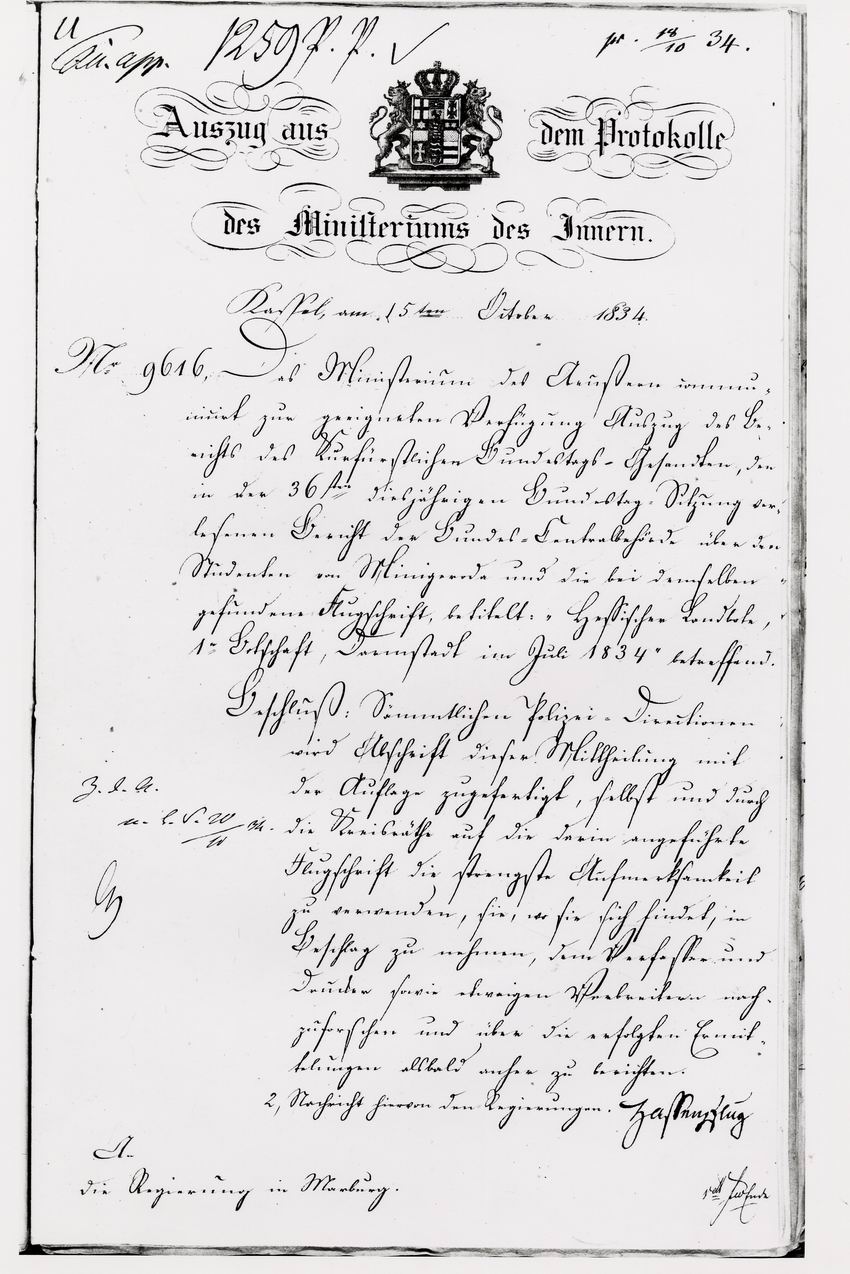 1259 P. P.
pr. 18/10 34.
Auszug aus dem Protokolle
des Ministeriums des Innern.
Kassel, am 15ten October 1834.
Nr 9616, Das Ministerium des Aeußern commu-
nicirt zur geeigneten Verfügung Auszug des Be-
richts des Kurfürstlichen Bundestags-Gesandten, den
in der 36sten diesjährigen Bundestag-Sitzung ver-
lesenen Bericht der Bundes-Centralbehörde über den
Studenten von Minigerode und die bei demselben
gefundene Flugschrift, betitelt: „Hessischer Landbote,
1e Botschaft, Darmstadt im Juli 1834" betreffend.
Beschluß: Sämmtlichen Polizei-Directionen
wird Abschrift dieser Mittheilung mit
der Auflage zugefertigt, selbst und durch
die Kreisräthe auf die darin angeführte
Flugschrift die strengste Aufmerksamkeit
zu verwenden, sie, wo sie sich findet, in
Beschlag zu nehmen, dem Verfasser und
Drucker sowie etwaigen Verbreitern nach-
zuforschen und über die erfolgten Ermit-
telungen alsbald anher zu berichten.
2, Nachricht hiervon den Regierungen.
Hassenpflug
Z. d. A.
20/10 34.
An
die Regierung in Marburg.